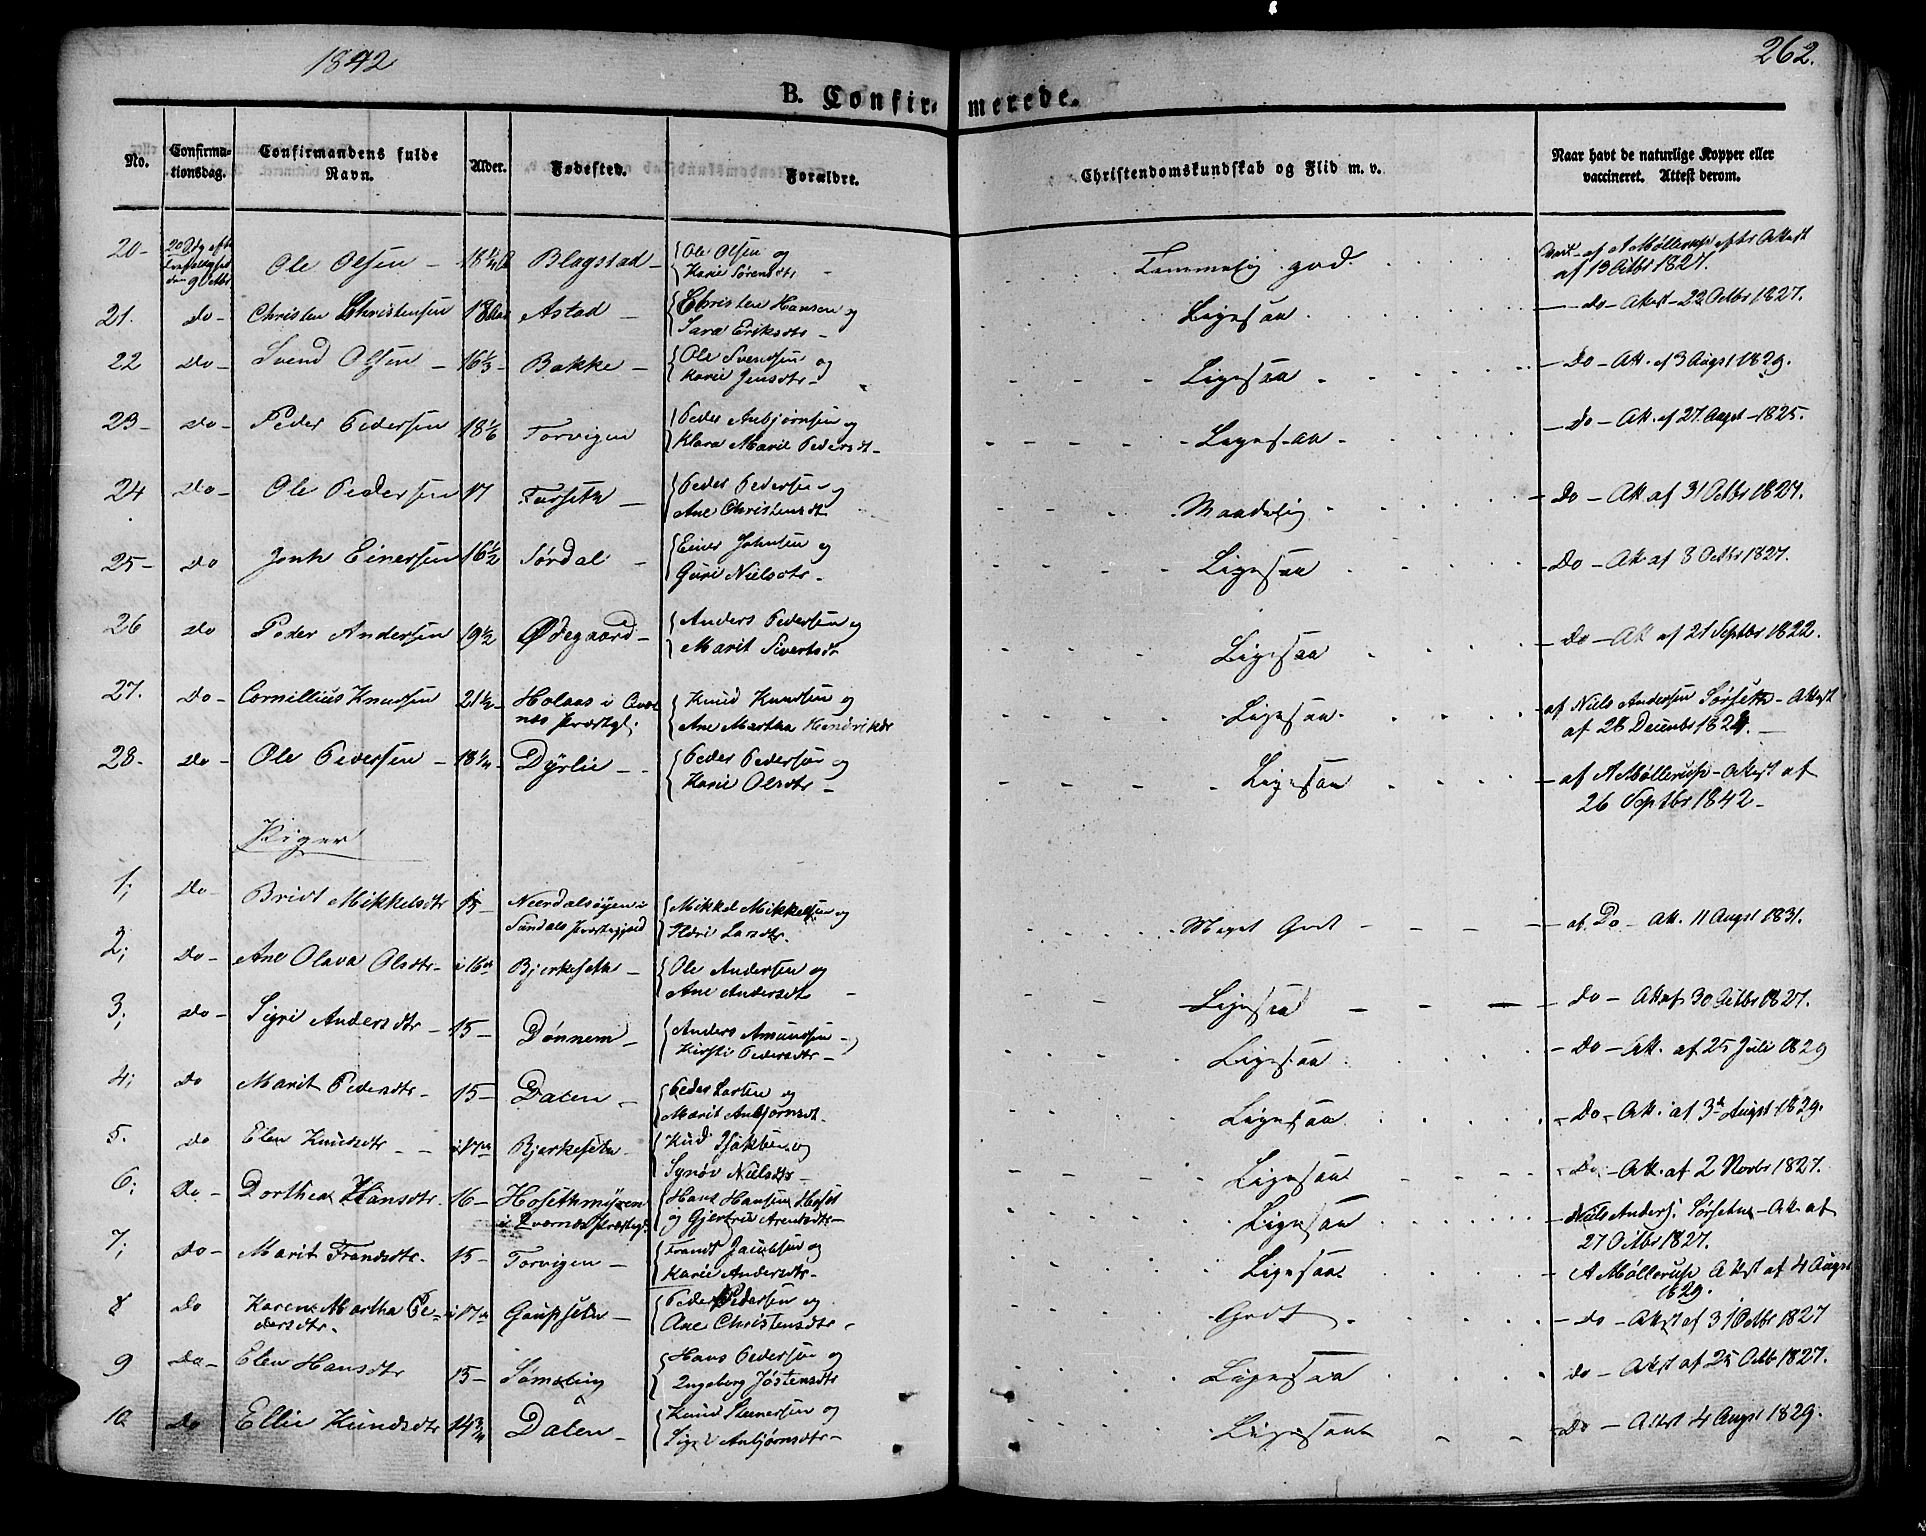 1842
262.
B. Confirmerede.
No.
Confirmationsdag.
Confirmandens fulde Navn.
Alder.
Fødested.
Forældre.
Christendomskundskab og Flid m. v.
Naar havt de naturlige Kopper eller vaccineret. Attest derom.
20- Ole Olsen - 18 1/4 Blagstad - Ole Olsen og Karie Sørensdtr - Temmelig god. af A Møllerup efter Attest af 13 Octbr 1827.
21. Do- Christen Christensen 18 Astad - Christen Hansen og Sara Eriksdtr - Ligesaa. - do- Attest- 22 Octbr 1827.
22 Do- Svend Olsen - 16 1/3- Bakke - Ole Svendsen og Karie Jensdtr- Ligesaa - Do- Att. af 3 Augst 1829.
23- Do- Peder Pedersen 18 1/6 Torvigen Peder Anbjørnsen og Klara Marie Pedersdt- Ligesaa - Do- Att. af 27 Augst- 1825.
24 Do- Ole Pedersen 17 Farseth - Peder Pedersen og Ane Christensdt Maadelig - Do- Att af 31 Octbr 1827.
25- Do Jonh Einersen 16 1/2 Sørdal - Einer Johnsen og Guri Nielsdtr- Ligesaa Do- Att af 8 Octbr 1827.
26 Do Peder Andersen 19 1/2 Ødegaard- Anders Pedersen og Marit Sivertsdtr Ligesaa - Do- Att af 21 Septbr 1822.
27. Do- Cornillius Knudsen 21 1/2- Holaas i Qværnes Præstgl. Knud Knudsen og Ane Martha Hendriksdr Ligesaa. af Niels Andersen Sørseth- Attest af 28 Decembr 1824.
28- Do- Ole Pedersen - 18 1/4- Dyrlie - Peder Pedersen og Karie Olsdtr - Ligesaa - af A Møllerup- Attest af 26 Septbr 1842-
Piger
1; Do- Bridt Mikkelsdtr 15- Nerdalsøyen i Sundals Præstegjeld Mikkel Mikkelsen og Larsdtr. Meget Godt - af Do- Att. 11 Augst 1831.
2; Do- Ane Olava Olsdtr- i 16 Bjerkeseth - Ole Andersen og Ane Andersdt - Ligesaa - Do- Att af 30 Octbr 1827.
3; Do- Sigri Andersdtr - 15- Dønnem - Anders Amundsen - Kirsti Pedersdtr- Ligesaa - Do- Att. af 25 Juli 1829
4; Do Marit Pedersdtr - 15- Dalen - Peder Larsen og Marit Anbjørnsdt. Ligesaa - Do- Att. af 3 Augst 1829.
5. Do Elen Knudsdtr - - i 17 Bjerkeseth - og Synøv Nielsdtr- Ligesaa - Do- Att. af 2 Novbr 1827.
6; Do- Dorthea Hansdtr. 16- Hosethmyren i Qværnes Præstgl. Hans Hansen Hoset og Gjertru Arentsdtr- Ligesaa - Niels Anders. Sørseth- Att. af 27 Octbr 1827.
7; Do- Marit Frandsdtr. 15- Torvigen - Frandt Jacobsen og Karie Andersdtr- Ligesaa - A Møllerup Attst af 4 Augst 1829.
8 Do Karen Martha Pedersdtr. i 17 Gaupseth - Peder Pedersen og Ane Christensdtr. Godt. - Do- Attst af 31 Octbr 1827
9 Do- Elen Hansdtr 15- Hans Pedersen og Ingeborg Jøstensdtr Ligesaa Do- Attst af 25 Octb 1827.
10. Do Ellie Knudsdtr 14 3/4 Dalen - Knud Steenersen og Anbjørnsdtr- Ligesaa - Do- Attst 4 Augst 1829.